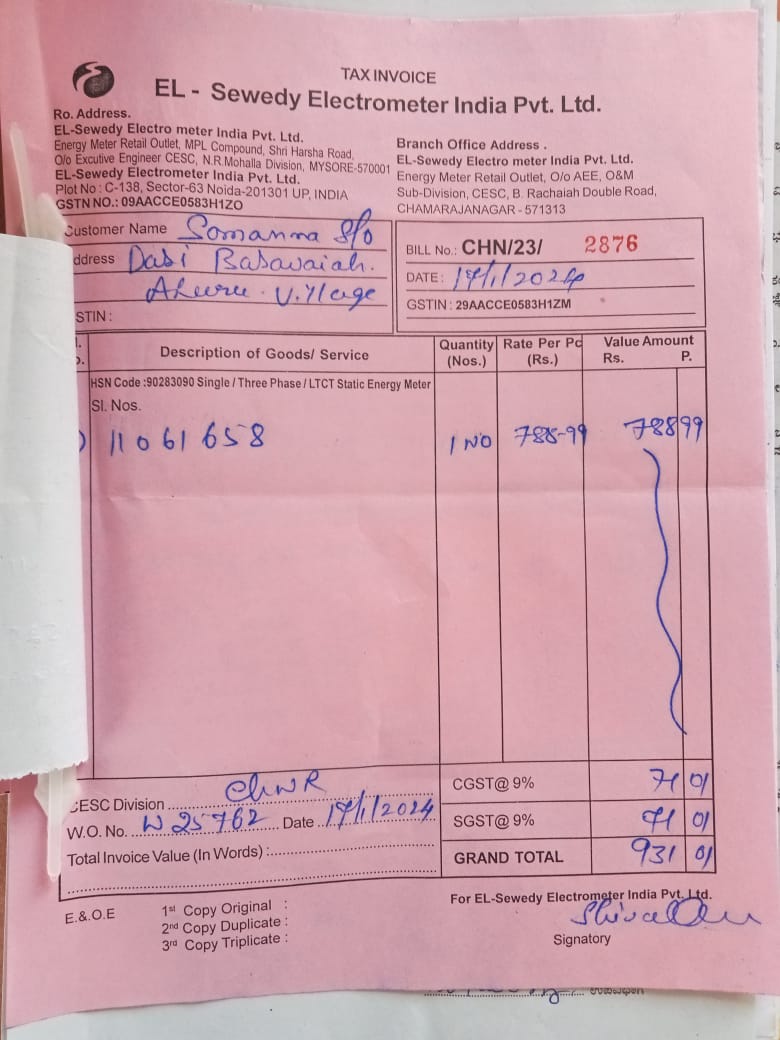 TAX INVOICE
EL - Sewedy Electrometer India Pvt. Ltd.
Ro. Address.
EL-Sewedy Electro meter India Pvt. Ltd.
Energy Meter Retail Outlet, MPL Compound, Shri Harsha Road,
O/o Excutive Engineer CESC, N.R.Mohalla Division, MYSORE-570001
EL-Sewedy Electrometer India Pvt. Ltd.
Plot No : C-138, Sector-63 Noida-201301 UP, INDIA
GSTN NO.: 09AACCE0583H1ZO
Branch Office Address .
EL-Sewedy Electro meter India Pvt. Ltd.
Energy Meter Retail Outlet, O/o AEE, O&M
Sub-Division, CESC, B. Rachaiah Double Road,
CHAMARAJANAGAR - 571313
Customer Name Somanna S/o
ddress Dabi Basavaiah.
Village
STIN :
BILL No.: CHN/23/ 2876
DATE : 17/1/2024
GSTIN : 29AACCE0583H1ZM
Description of Goods/ Service Quantity (Nos.) Rate Per Pc (Rs.) Value Amount Rs. P.
HSN Code :90283090 Single / Three Phase / LTCT Static Energy Meter
Sl. Nos.
) 11061658 1 NO 788-99 788 99
CESC Division CHNR
W.O. No. W25762 Date 17/1/2024
Total Invoice Value (In Words) :
CGST@ 9% 71 01
SGST@ 9% 71 01
GRAND TOTAL 931 01
E.&.O.E
1st Copy Original :
2nd Copy Duplicate :
3rd Copy Triplicate :
For EL-Sewedy Electrometer India Pvt. Ltd.
Signatory